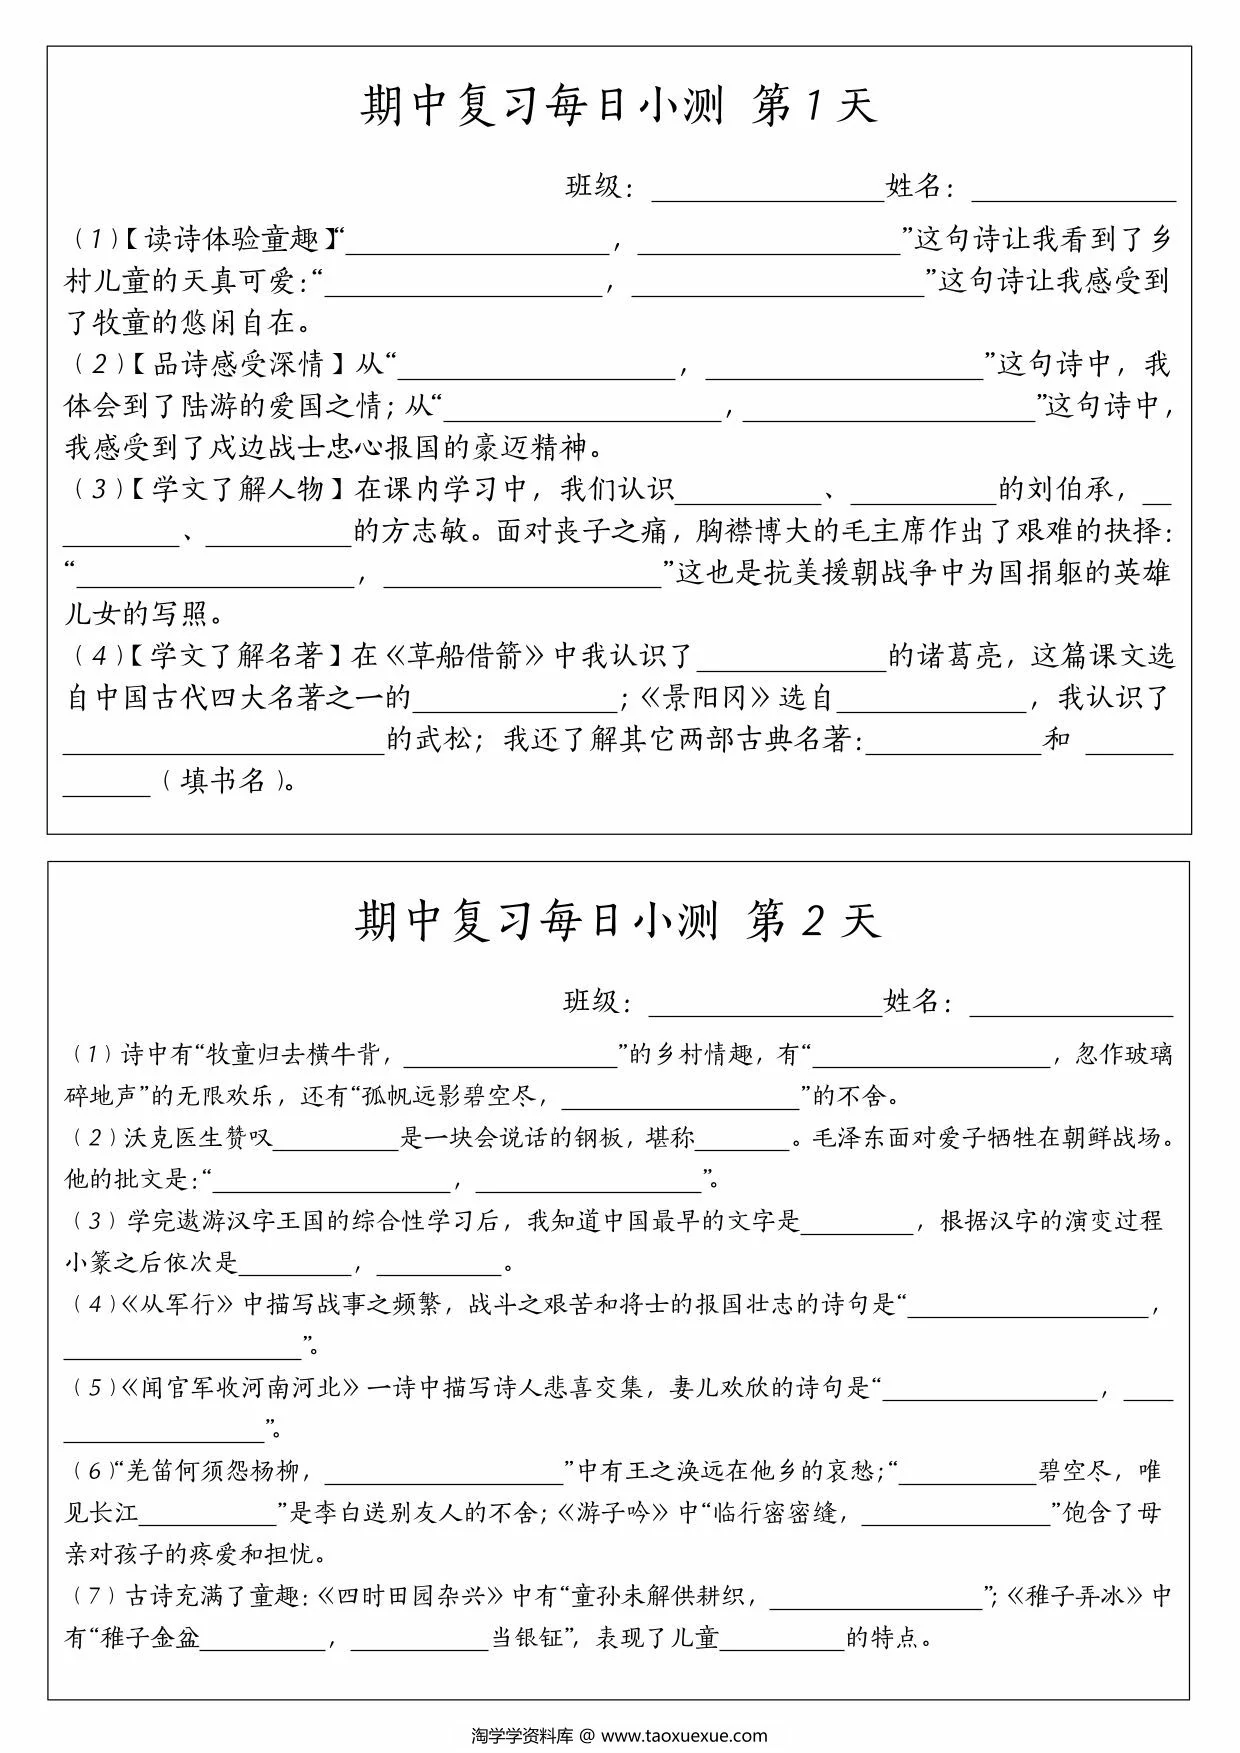 期中复习每日小测 第1天
班级：________姓名：________
（1）【读诗体验童趣】“________，________”这句诗让我看到了乡
村儿童的天真可爱：“________，________”这句诗让我感受到
了牧童的悠闲自在。
（2）【品诗感受深情】从“________，________”这句诗中，我
体会到了陆游的爱国之情；从“________，________”这句诗中，
我感受到了戍边战士忠心报国的豪迈精神。
（3）【学文了解人物】在课内学习中，我们认识________、________的刘伯承，__
________、________的方志敏。面对丧子之痛，胸襟博大的毛主席作出了艰难的抉择：
“________，________”这也是抗美援朝战争中为国捐躯的英雄
儿女的写照。
（4）【学文了解名著】在《草船借箭》中我认识了________的诸葛亮，这篇课文选
自中国古代四大名著之一的________；《景阳冈》选自________，我认识了
________的武松；我还了解其它两部古典名著：________和 ______
______（填书名）。
期中复习每日小测 第2天
班级：________姓名：________
（1）诗中有“牧童归去横牛背，________”的乡村情趣，有“________，忽作玻璃
碎地声”的无限欢乐，还有“孤帆远影碧空尽，________”的不舍。
（2）沃克医生赞叹________是一块会说话的钢板，堪称________。毛泽东面对爱子牺牲在朝鲜战场。
他的批文是：“________，________”。
（3）学完遨游汉字王国的综合性学习后，我知道中国最早的文字是________，根据汉字的演变过程
小篆之后依次是________，________。
（4）《从军行》中描写战事之频繁，战斗之艰苦和将士的报国壮志的诗句是“________，
________”。
（5）《闻官军收河南河北》一诗中描写诗人悲喜交集，妻儿欢欣的诗句是“________，____
________”。
（6）“羌笛何须怨杨柳，________”中有王之涣远在他乡的哀愁；“________碧空尽，唯
见长江________”是李白送别友人的不舍；《游子吟》中“临行密密缝，________”饱含了母
亲对孩子的疼爱和担忧。
（7）古诗充满了童趣：《四时田园杂兴》中有“童孙未解供耕织，________”；《稚子弄冰》中
有“稚子金盆________，________当银钲”，表现了儿童________的特点。
淘学学资料库 @ www.taoxuexue.com